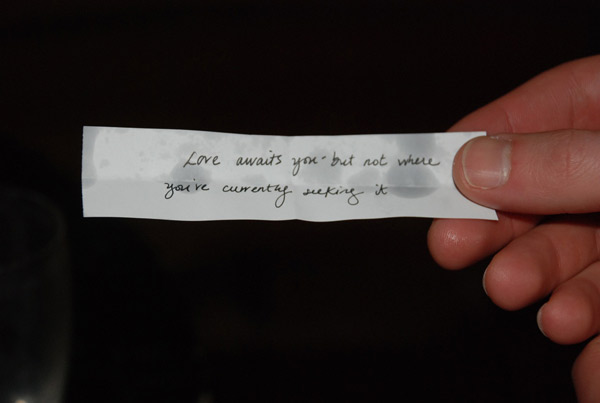 Love awaits you - but not where
you're currently seeking it